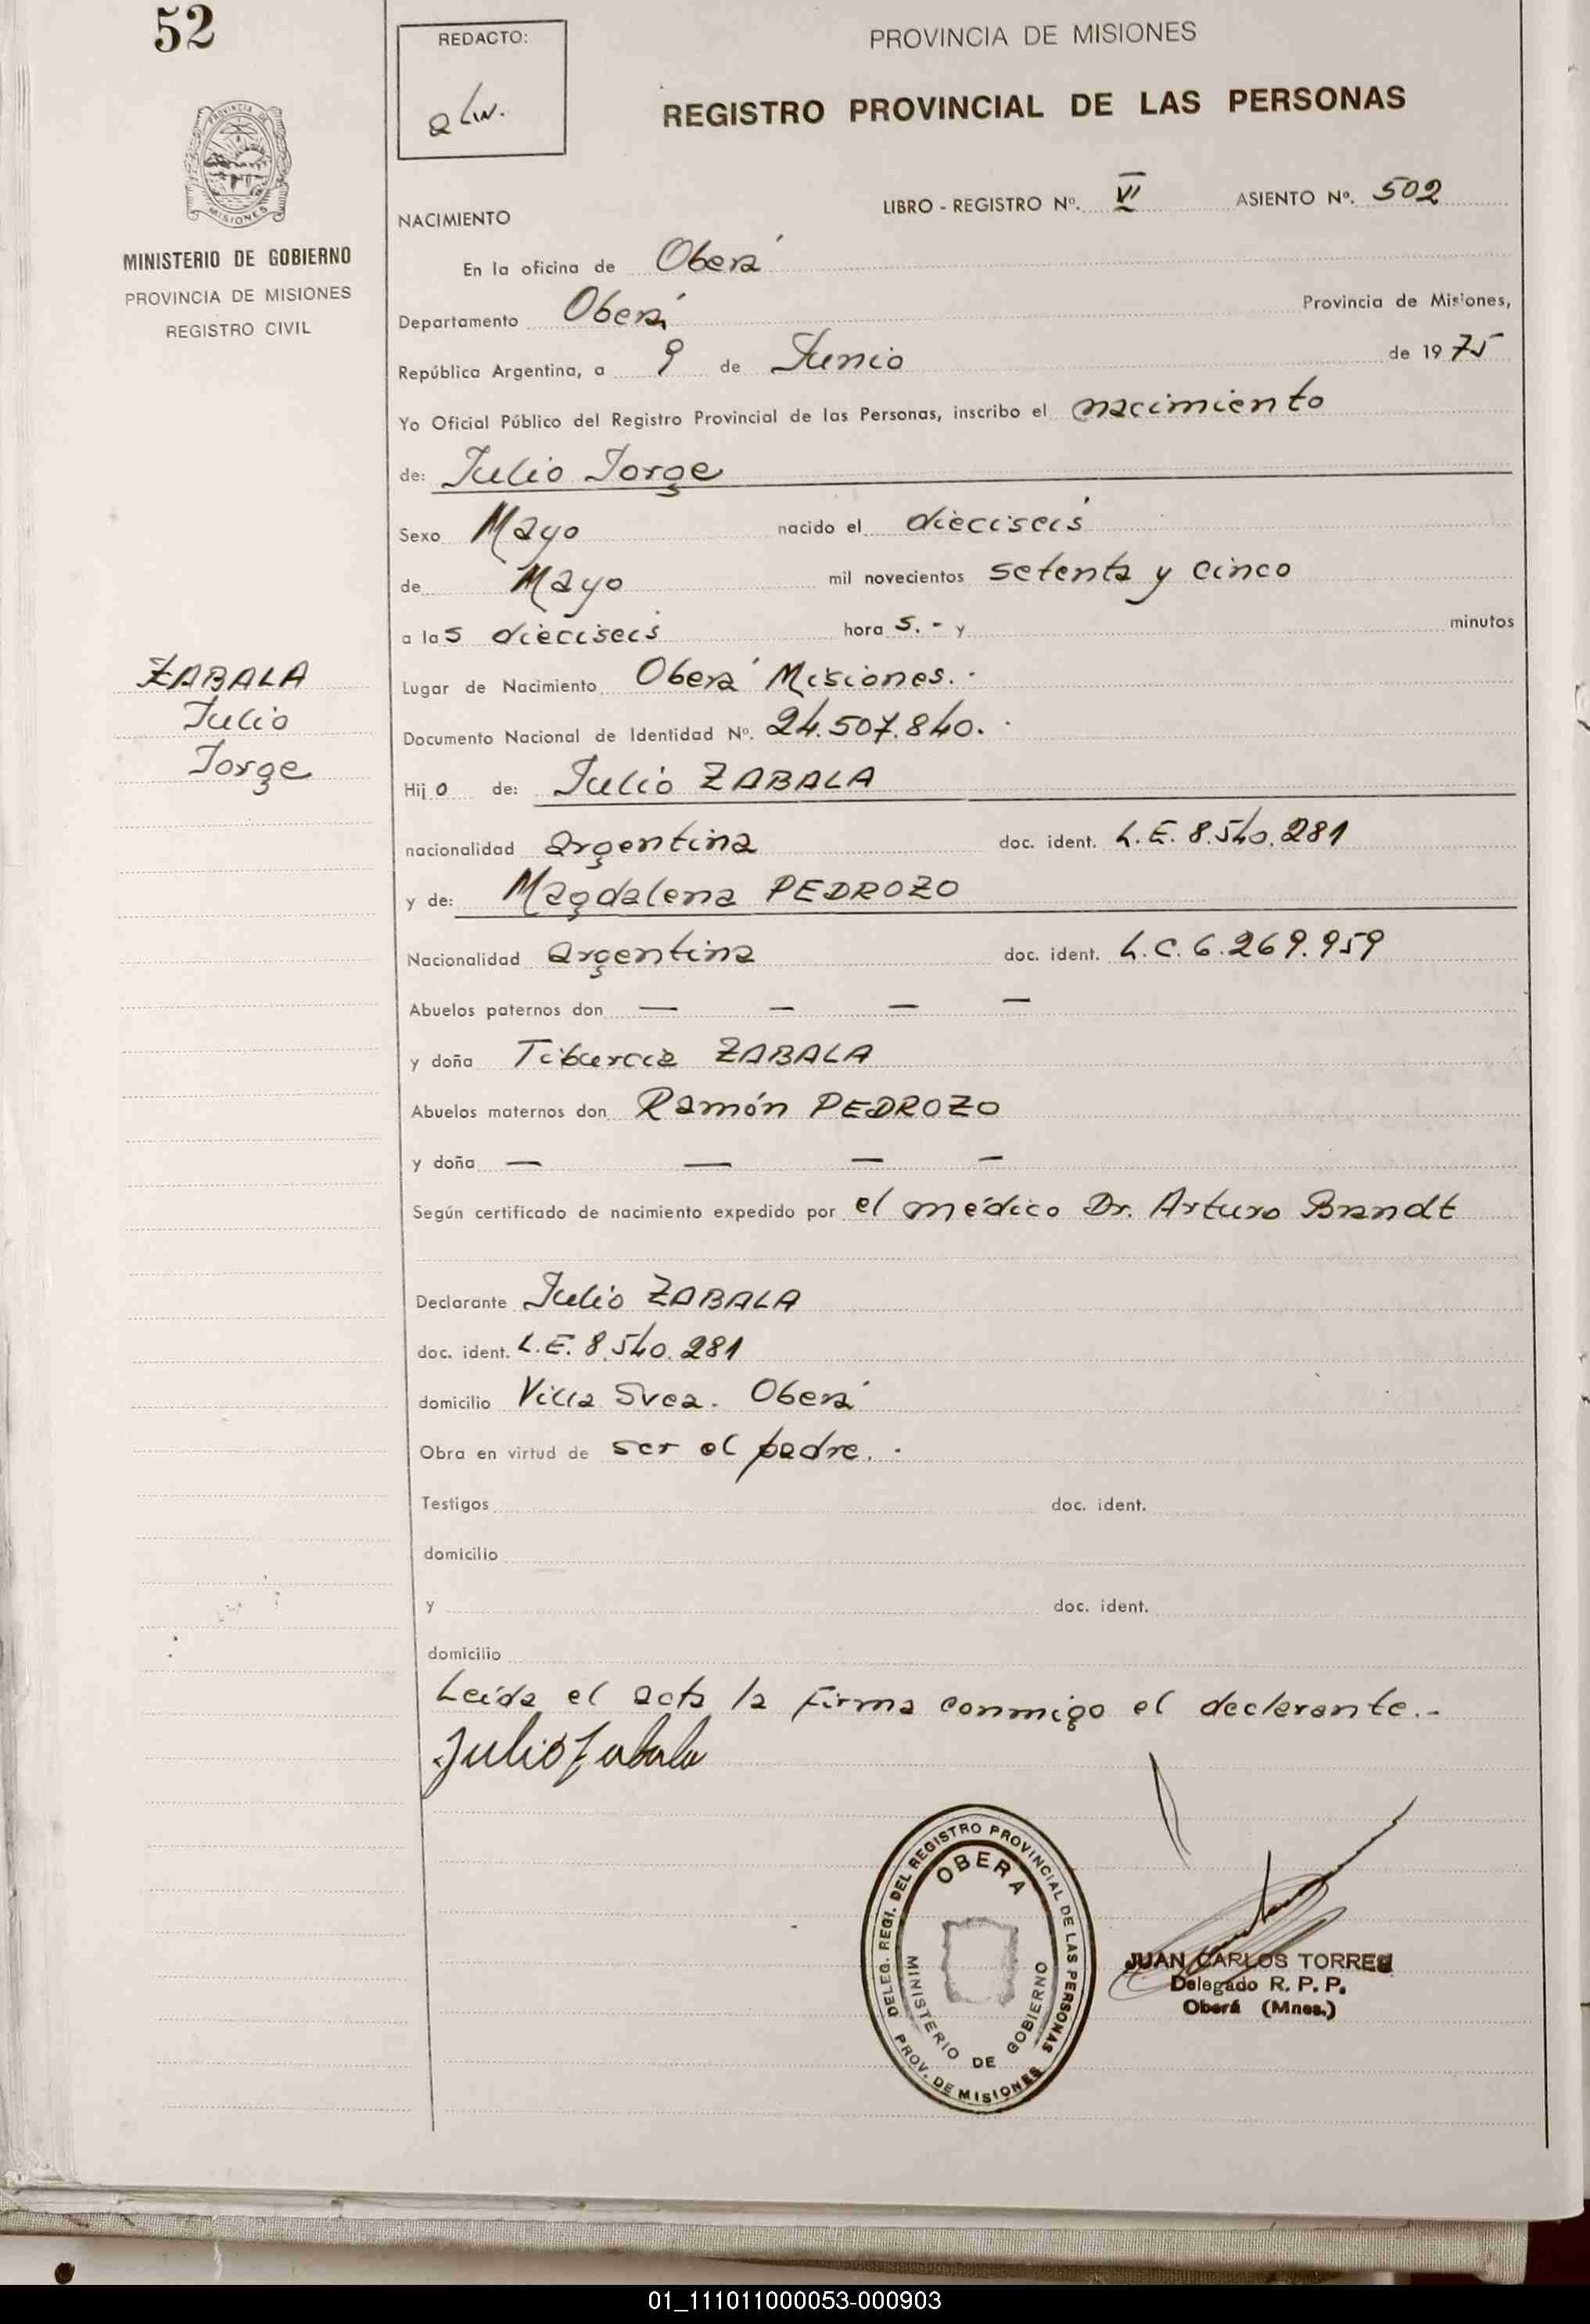 52
REDACTO:
PROVINCIA DE MISIONES
REGISTRO PROVINCIAL DE LAS PERSONAS
LIBRO - REGISTRO Nº. VI ASIENTO Nº. 502
NACIMIENTO
MINISTERIO DE GOBIERNO
PROVINCIA DE MISIONES
REGISTRO CIVIL
En la oficina de Oberá
Departamento Oberá Provincia de Misiones,
República Argentina, a 9 de Junio de 1975
Yo Oficial Público del Registro Provincial de las Personas, inscribo el nacimiento
de: Julio Jorge
Sexo Mayo nacido el dieciseis
de Mayo mil novecientos setenta y cinco
a las dieciseis hora s.- y minutos
ZABALA
Julio
Jorge
Lugar de Nacimiento Oberá Misiones.-
Documento Nacional de Identidad Nº. 24.507.840.-
Hijo de: Julio ZABALA
nacionalidad argentina doc. ident. L.E. 8.540.281
y de: Magdalena PEDROZO
Nacionalidad argentina doc. ident. L.C. 6.269.959
Abuelos paternos don — — — —
y doña Tiburcia ZABALA
Abuelos maternos don Ramón PEDROZO
y doña — — — —
Según certificado de nacimiento expedido por el médico Dr. Arturo Brandt
Declarante Julio ZABALA
doc. ident. L.E. 8.540.281
domicilio Villa Svea. Oberá
Obra en virtud de ser el padre.-
Testigos doc. ident.
domicilio
y doc. ident.
domicilio
Leída el acta la firma conmigo el declarante.-
Julio Zabala
DELEG. REGI. DEL REGISTRO PROVINCIAL DE LAS PERSONAS
OBERA
MINISTERIO DE GOBIERNO
PROV. DE MISIONES
JUAN CARLOS TORRES
Delegado R. P. P.
Oberá (Mnes.)
01_111011000053-000903